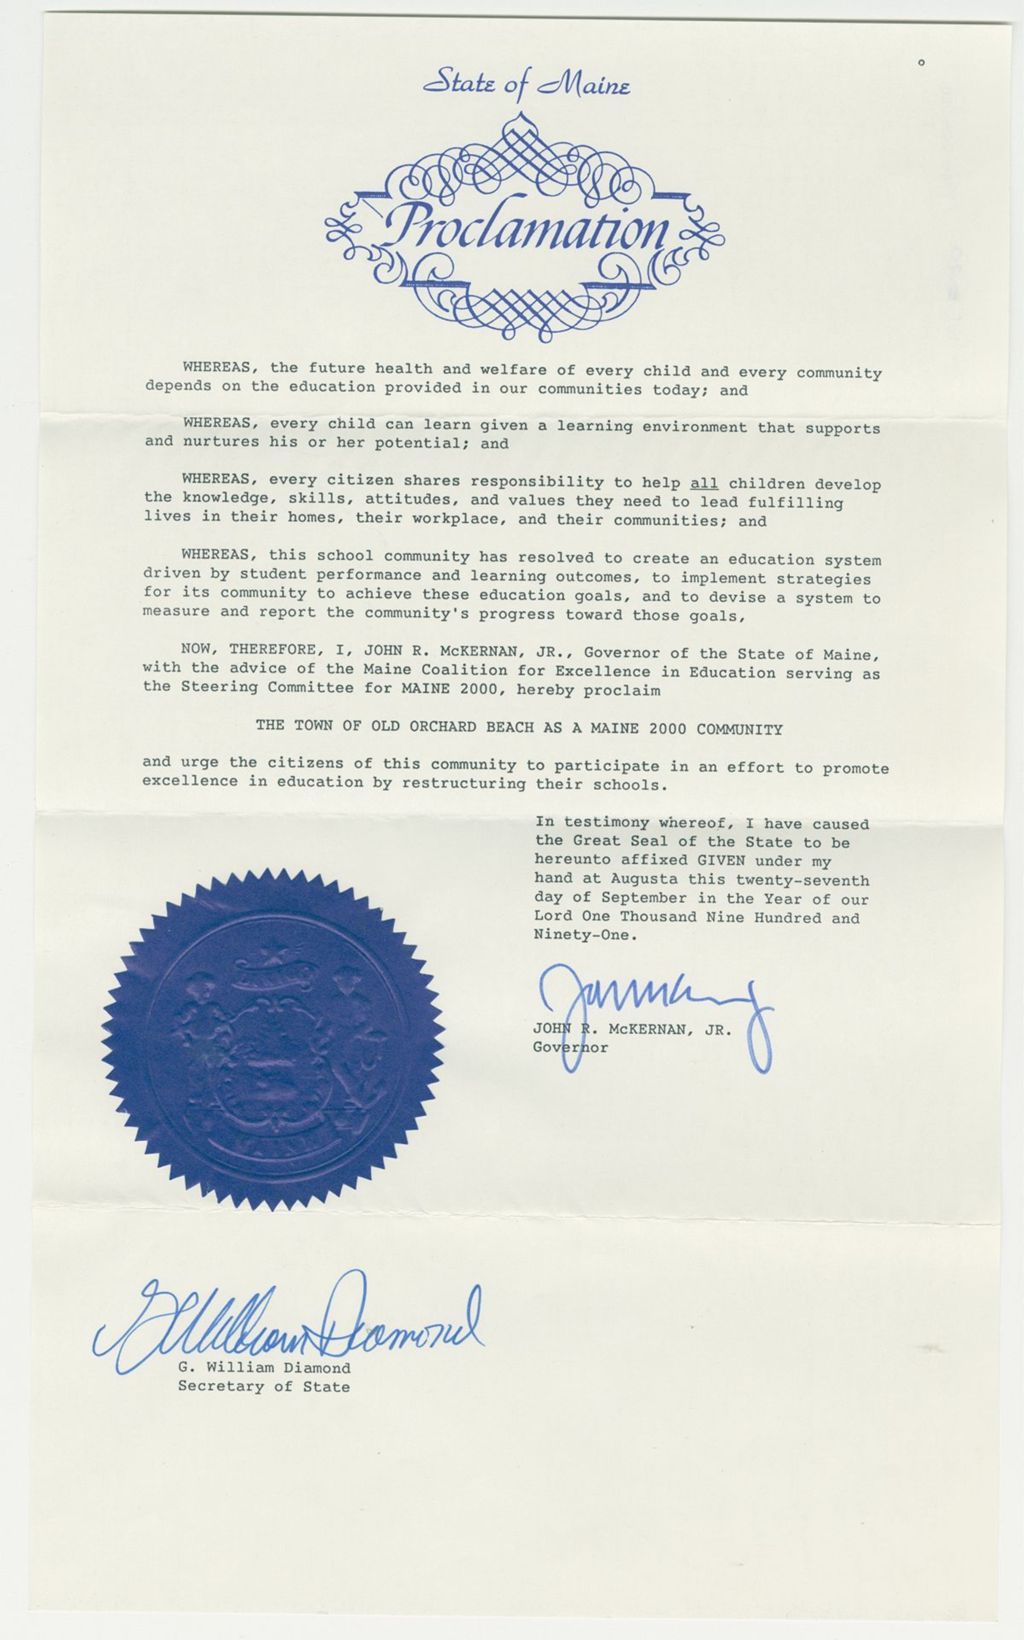 State of Maine
Proclamation
WHEREAS, the future health and welfare of every child and every community
depends on the education provided in our communities today; and
WHEREAS, every child can learn given a learning environment that supports
and nurtures his or her potential; and
WHEREAS, every citizen shares responsibility to help all children develop
the knowledge, skills, attitudes, and values they need to lead fulfilling
lives in their homes, their workplace, and their communities; and
WHEREAS, this school community has resolved to create an education system
driven by student performance and learning outcomes, to implement strategies
for its community to achieve these education goals, and to devise a system to
measure and report the community's progress toward those goals,
NOW, THEREFORE, I, JOHN R. McKERNAN, JR., Governor of the State of Maine,
with the advice of the Maine Coalition for Excellence in Education serving as
the Steering Committee for MAINE 2000, hereby proclaim
THE TOWN OF OLD ORCHARD BEACH AS A MAINE 2000 COMMUNITY
and urge the citizens of this community to participate in an effort to promote
excellence in education by restructuring their schools.
In testimony whereof, I have caused
the Great Seal of the State to be
hereunto affixed GIVEN under my
hand at Augusta this twenty-seventh
day of September in the Year of our
Lord One Thousand Nine Hundred and
Ninety-One.
JOHN R. McKERNAN, JR.
Governor
G William Diamond
G. William Diamond
Secretary of State